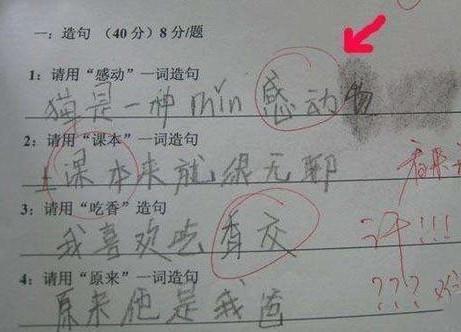 一：造句（40分）8分/题
1：请用“感动”一词造句
猫是一种min感动物
2：请用“课本”一词造句
上课本来就很无聊
看来
3：请用“吃香”造句
我喜欢吃香交
!!!
4：请用“原来”一词造句
???
原来他是我爸